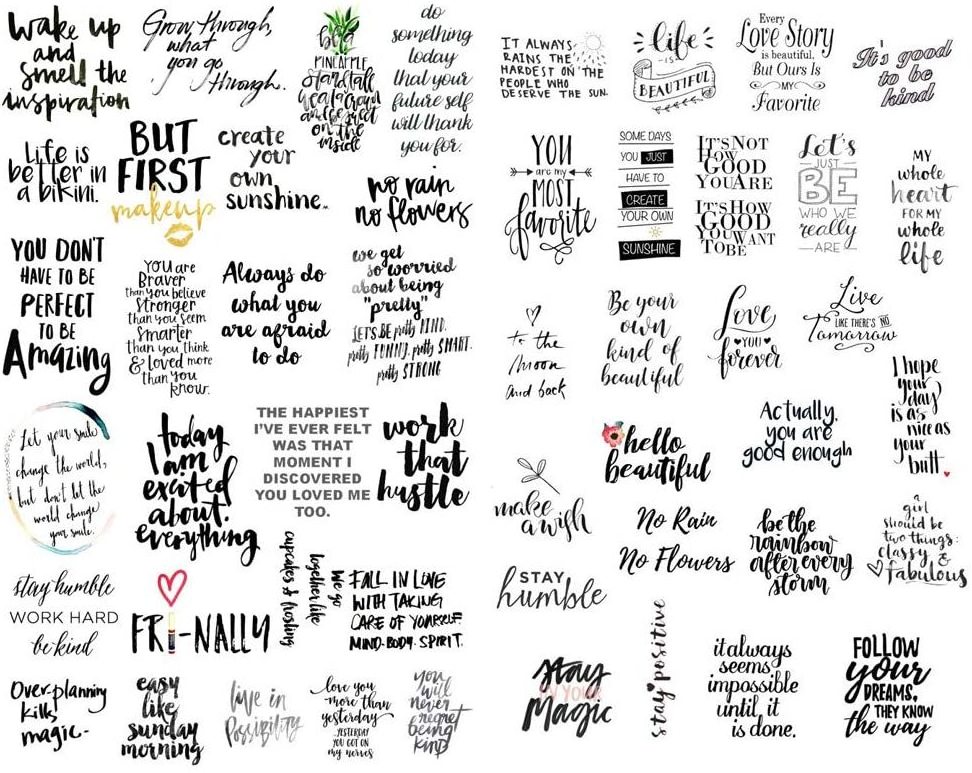 wake up
and
smell the
inspiration
Grow through,
what
you go
through.
be a
PINEAPPLE
stand tall
wear a crown
and be sweet
on the
inside
do
something
today
that your
future self
will thank
you for.
Life is
better in
a bikini.
BUT
FIRST
makeup
create
your
own
sunshine.
no rain
no flowers
YOU DON'T
HAVE TO BE
PERFECT
TO BE
Amazing
You are
Braver
than you believe
Stronger
than you seem
Smarter
than you think
& loved more
than you
know.
Always do
what you
are afraid
to do
we get
so worried
about being
"pretty"
LET'S BE pretty KIND.
pretty FUNNY. pretty SMART.
pretty STRONG
Let your smile
change the world,
but don't let the
world change
your smile.
today
I am
excited
about.
everything
THE HAPPIEST
I'VE EVER FELT
WAS THAT
MOMENT I
DISCOVERED
YOU LOVED ME
TOO.
work
that
hustle
stay humble
WORK HARD
be kind
FRI-NALLY
We go
together like
cupcakes & frosting
FALL IN LOVE
WITH TAKING
CARE OF YOURSELF
MIND·BODY·SPIRIT.
Over-planning
kills
magic-
easy
like
sunday
morning
live in
Possibility
love you
more than
yesterday
YESTERDAY
YOU GOT ON
my nerves
you
will
never
regret
being
kind
IT ALWAYS
RAINS THE
HARDEST ON THE
PEOPLE WHO
DESERVE THE SUN.
life
IS
BEAUTIFUL
Every
Love Story
is beautiful,
But Ours Is
MY
Favorite
It's good
to be
kind
YOU
are my
MOST
favorite
SOME DAYS
YOU JUST
HAVE TO
CREATE
YOUR OWN
SUNSHINE
IT'S NOT
HOW
GOOD
YOU ARE
IT'S HOW
GOOD
YOU WANT
TO BE
Let's
JUST
BE
WHO WE
really
ARE
MY
whole
heart
FOR MY
whole
life
to the
moon
and back
Be your
own
kind of
beautiful
Love
YOU
forever
Live
LIKE THERE'S NO
Tomorrow
I hope
your
day
is as
nice as
your
butt.
hello
beautiful
Actually,
you are
good enough
make
a wish
No Rain
No Flowers
be the
rainbow
after every
storm
a
girl
should be
two things:
classy &
fabulous
STAY
humble
stay
IN YOUR
Magic
stay positive
it always
seems
impossible
until it
is done.
FOLLOW
your
DREAMS,
THEY KNOW
the way